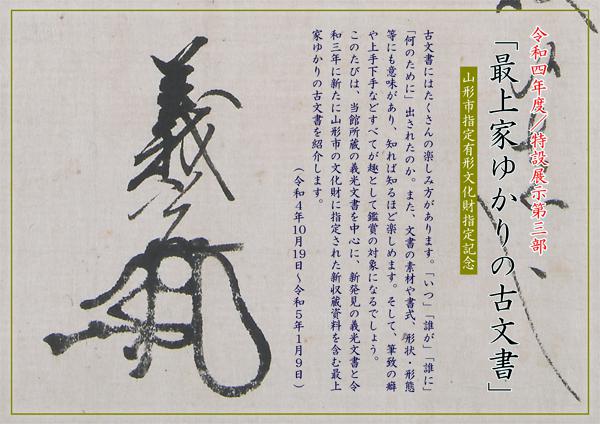 令和四年度／特設展示第三部
「最上家ゆかりの古文書」
山形市指定有形文化財指定記念
古文書にはたくさんの楽しみ方があります。「いつ」「誰が」「誰に」
「何のために」出されたのか。また、文書の素材や書式、形状・形態
等にも意味があり、知れば知るほど楽しめます。そして、筆致の癖
や上手下手などすべてが趣として鑑賞の対象になるでしょう。
このたびは、当館所蔵の義光文書を中心に、新発見の義光文書と令
和三年に新たに山形市の文化財に指定された新収蔵資料を含む最上
家ゆかりの古文書を紹介します。
（令和４年１０月１９日～令和５年１月９日）
義光